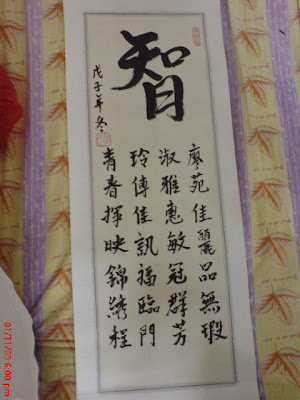 智
戊子年冬
廖苑佳麗品無瑕
淑雅惠敏冠群芳
玲傳佳訊福臨門
青春揮映錦綉程
6:00 pm